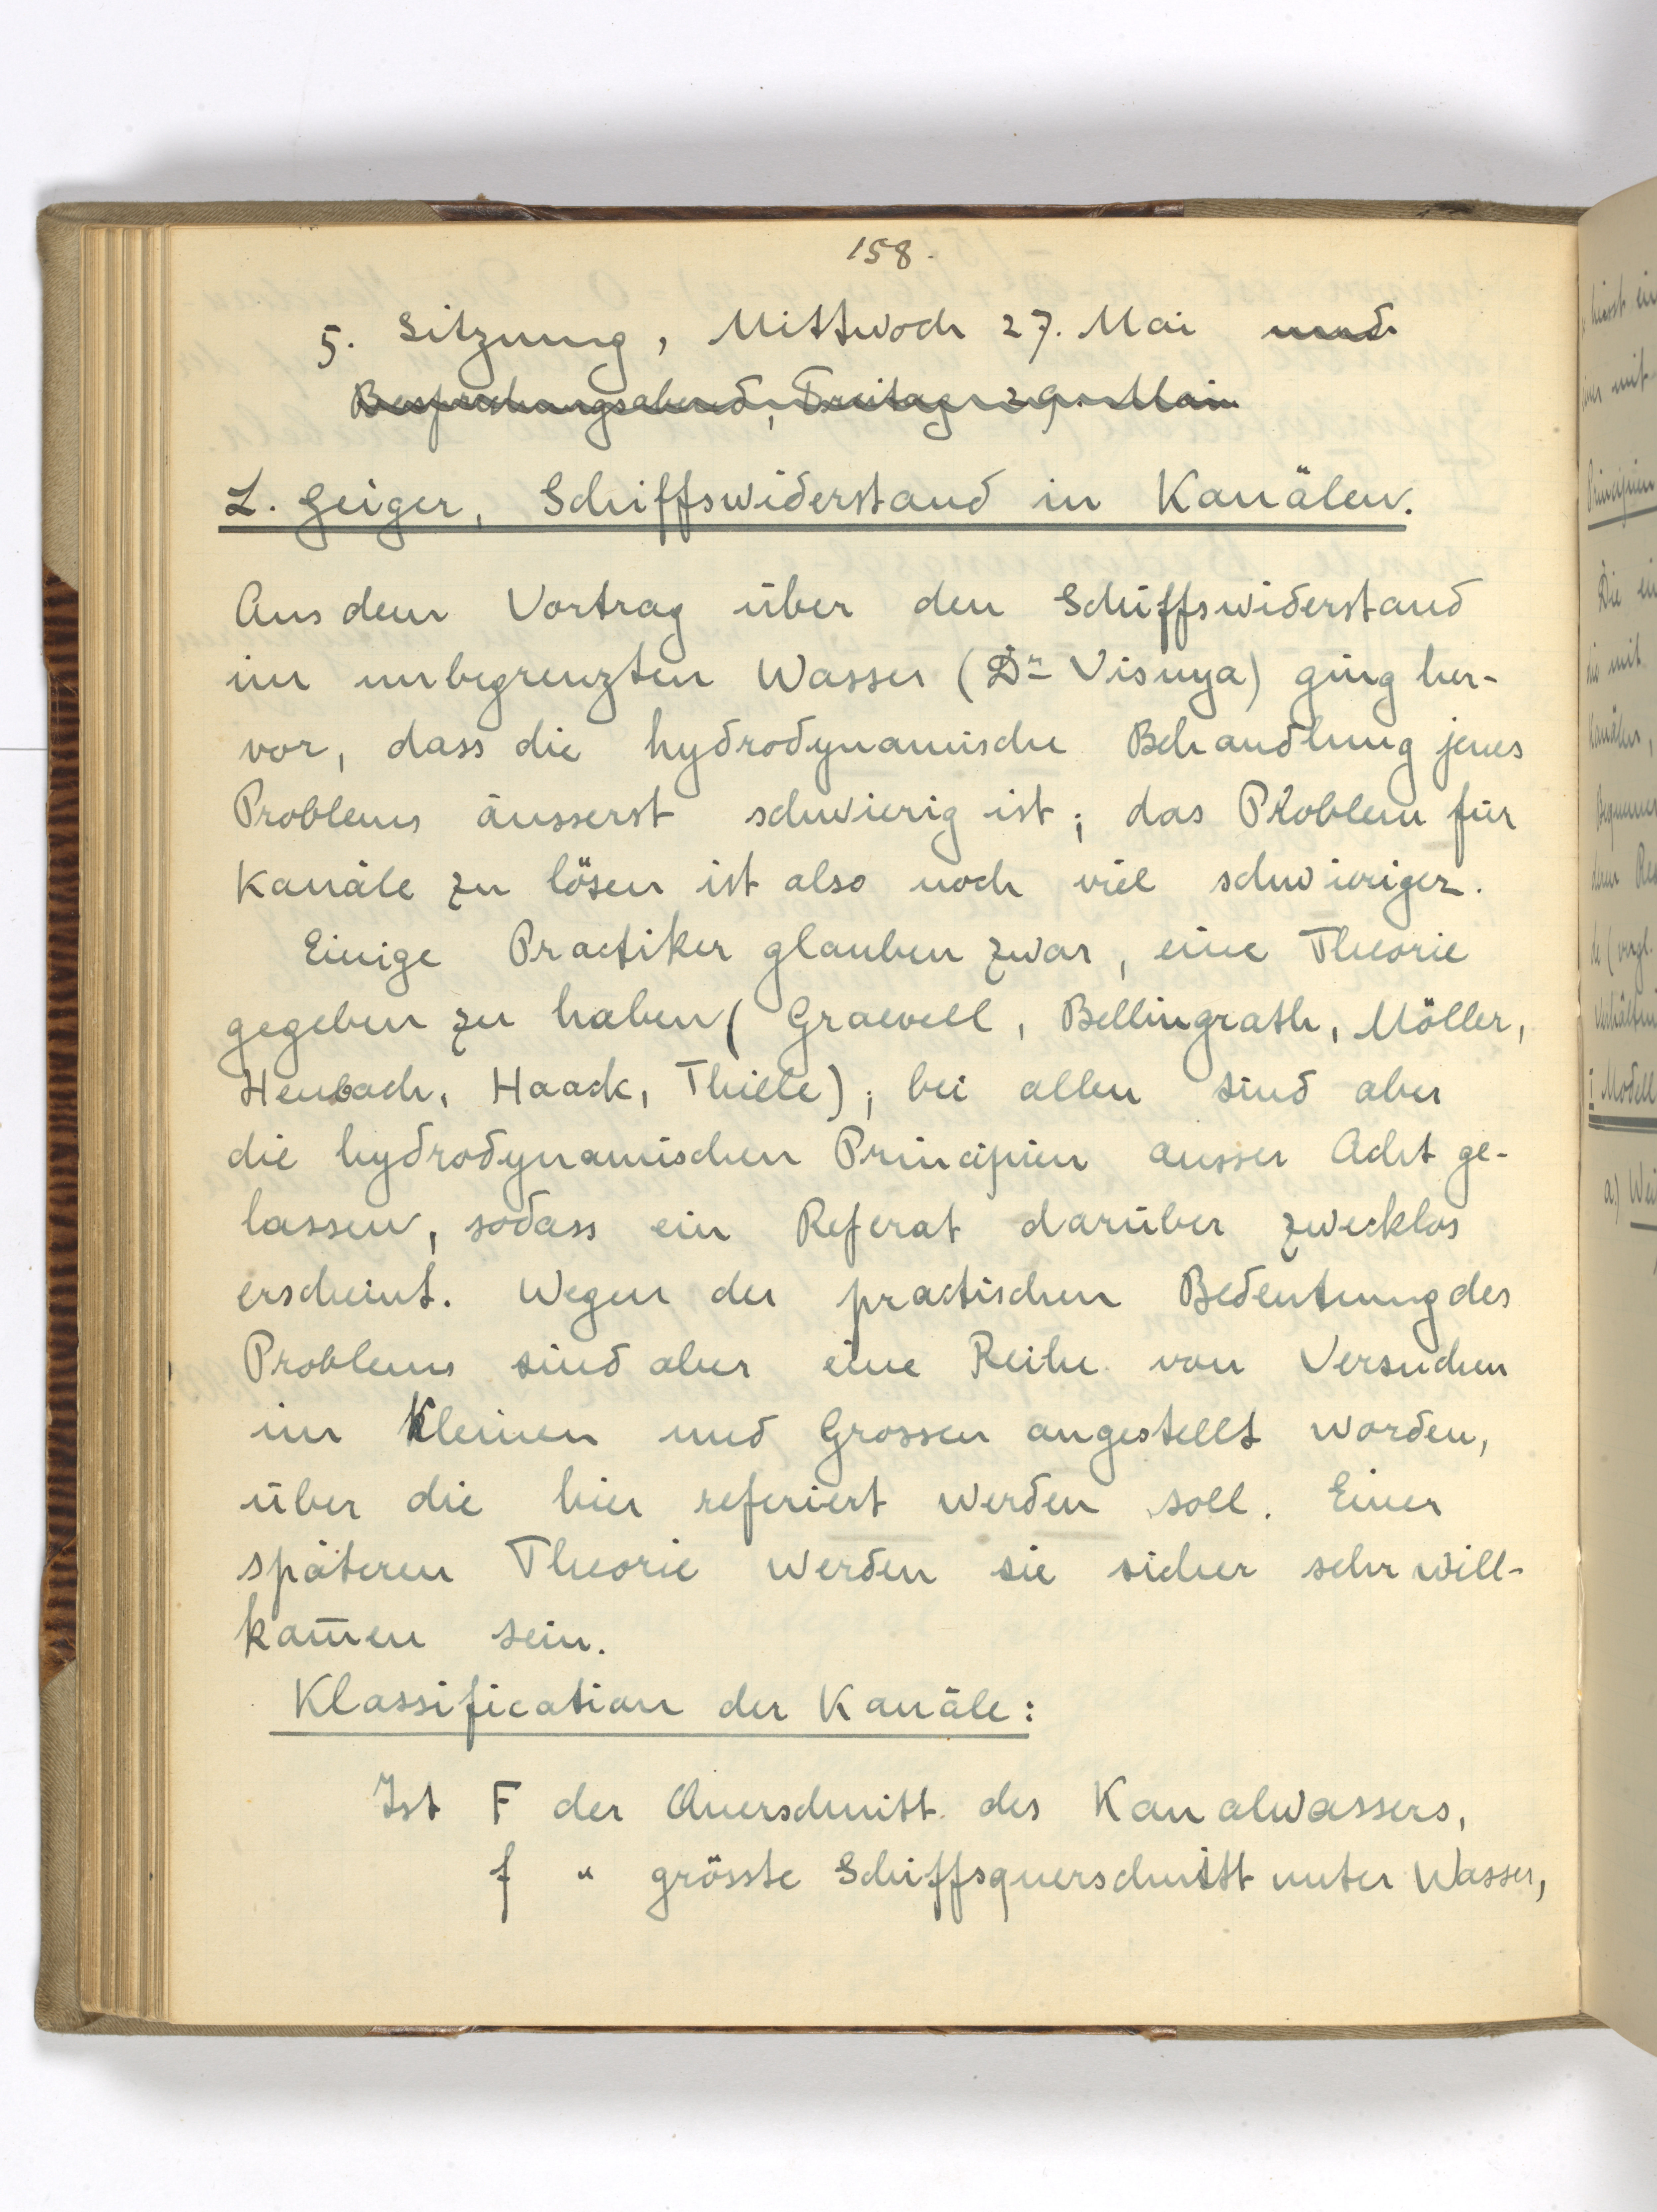 158.
5. Sitzung, Mittwoch 27. Mai und
Besprechungsabend, Freitag 29. Mai
L. Geiger, Schiffswiderstand in Kanälen.
Aus dem Vortrag über den Schiffswiderstand
im unbegrenzten Wasser (Dr Visnya) ging her-
vor, dass die hydrodynamische Behandlung jenes
Problems äusserst schwierig ist; das Problem für
Kanäle zu lösen ist also noch viel schwieriger.
Einige Practiker glauben zwar, eine Theorie
gegeben zu haben (Graevell, Bellingrath, Möller,
Heubach, Haack, Thiele); bei allen sind aber
die hydrodynamischen Principien ausser Acht ge-
lassen, sodass ein Referat darüber zwecklos
erscheint. Wegen der practischen Bedeutung des
Problems sind aber eine Reihe von Versuchen
im Kleinen und Grossen angestellt worden,
über die hier referiert werden soll. Einer
späteren Theorie werden sie sicher sehr will-
kom̅en sein.
Klassification der Kanäle:
Ist F der Querschnitt des Kanalwassers,
f " grösste Schiffsquerschnitt unter Wasser,
Die
die mit
Kanälen,
I Modell
a.)